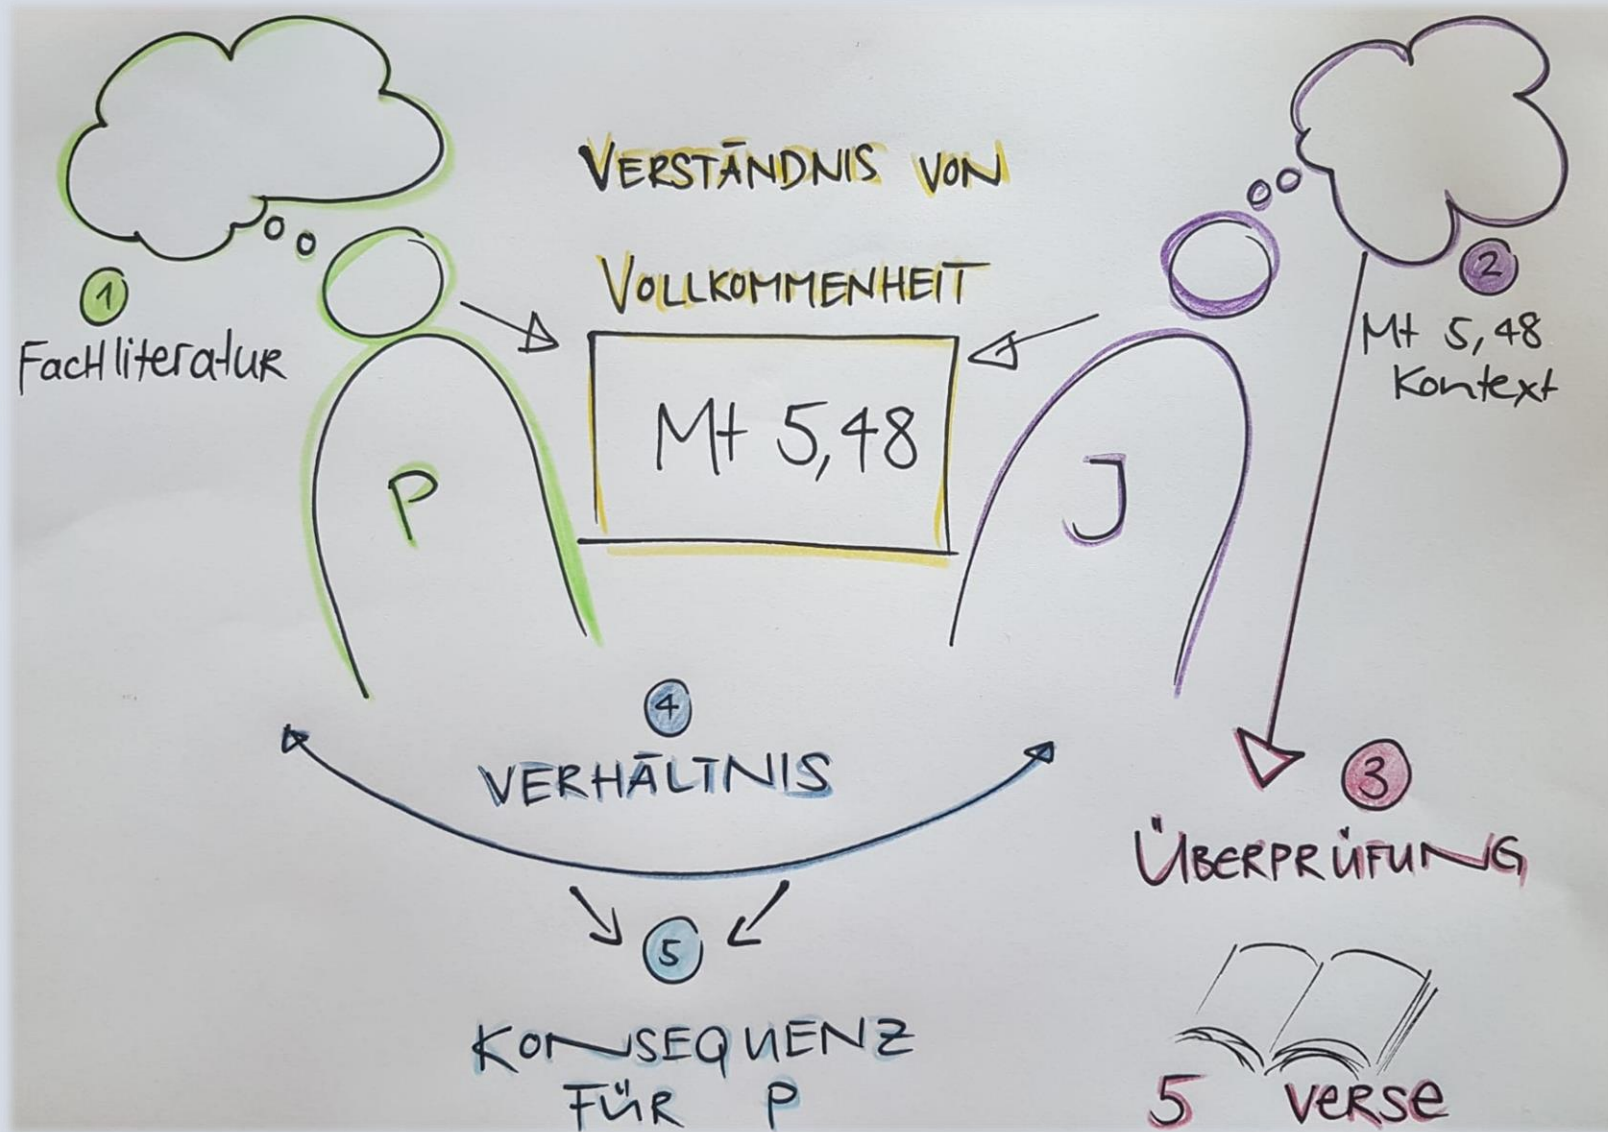 VERSTÄNDNIS VON
VOLLKOMMENHEIT
1
Fachliteratur
2
Mt 5,48
Kontext
Mt 5,48
P
J
4
VERHÄLTNIS
3
ÜBERPRÜFUNG
5
KONSEQUENZ
FÜR P
5 VERSE